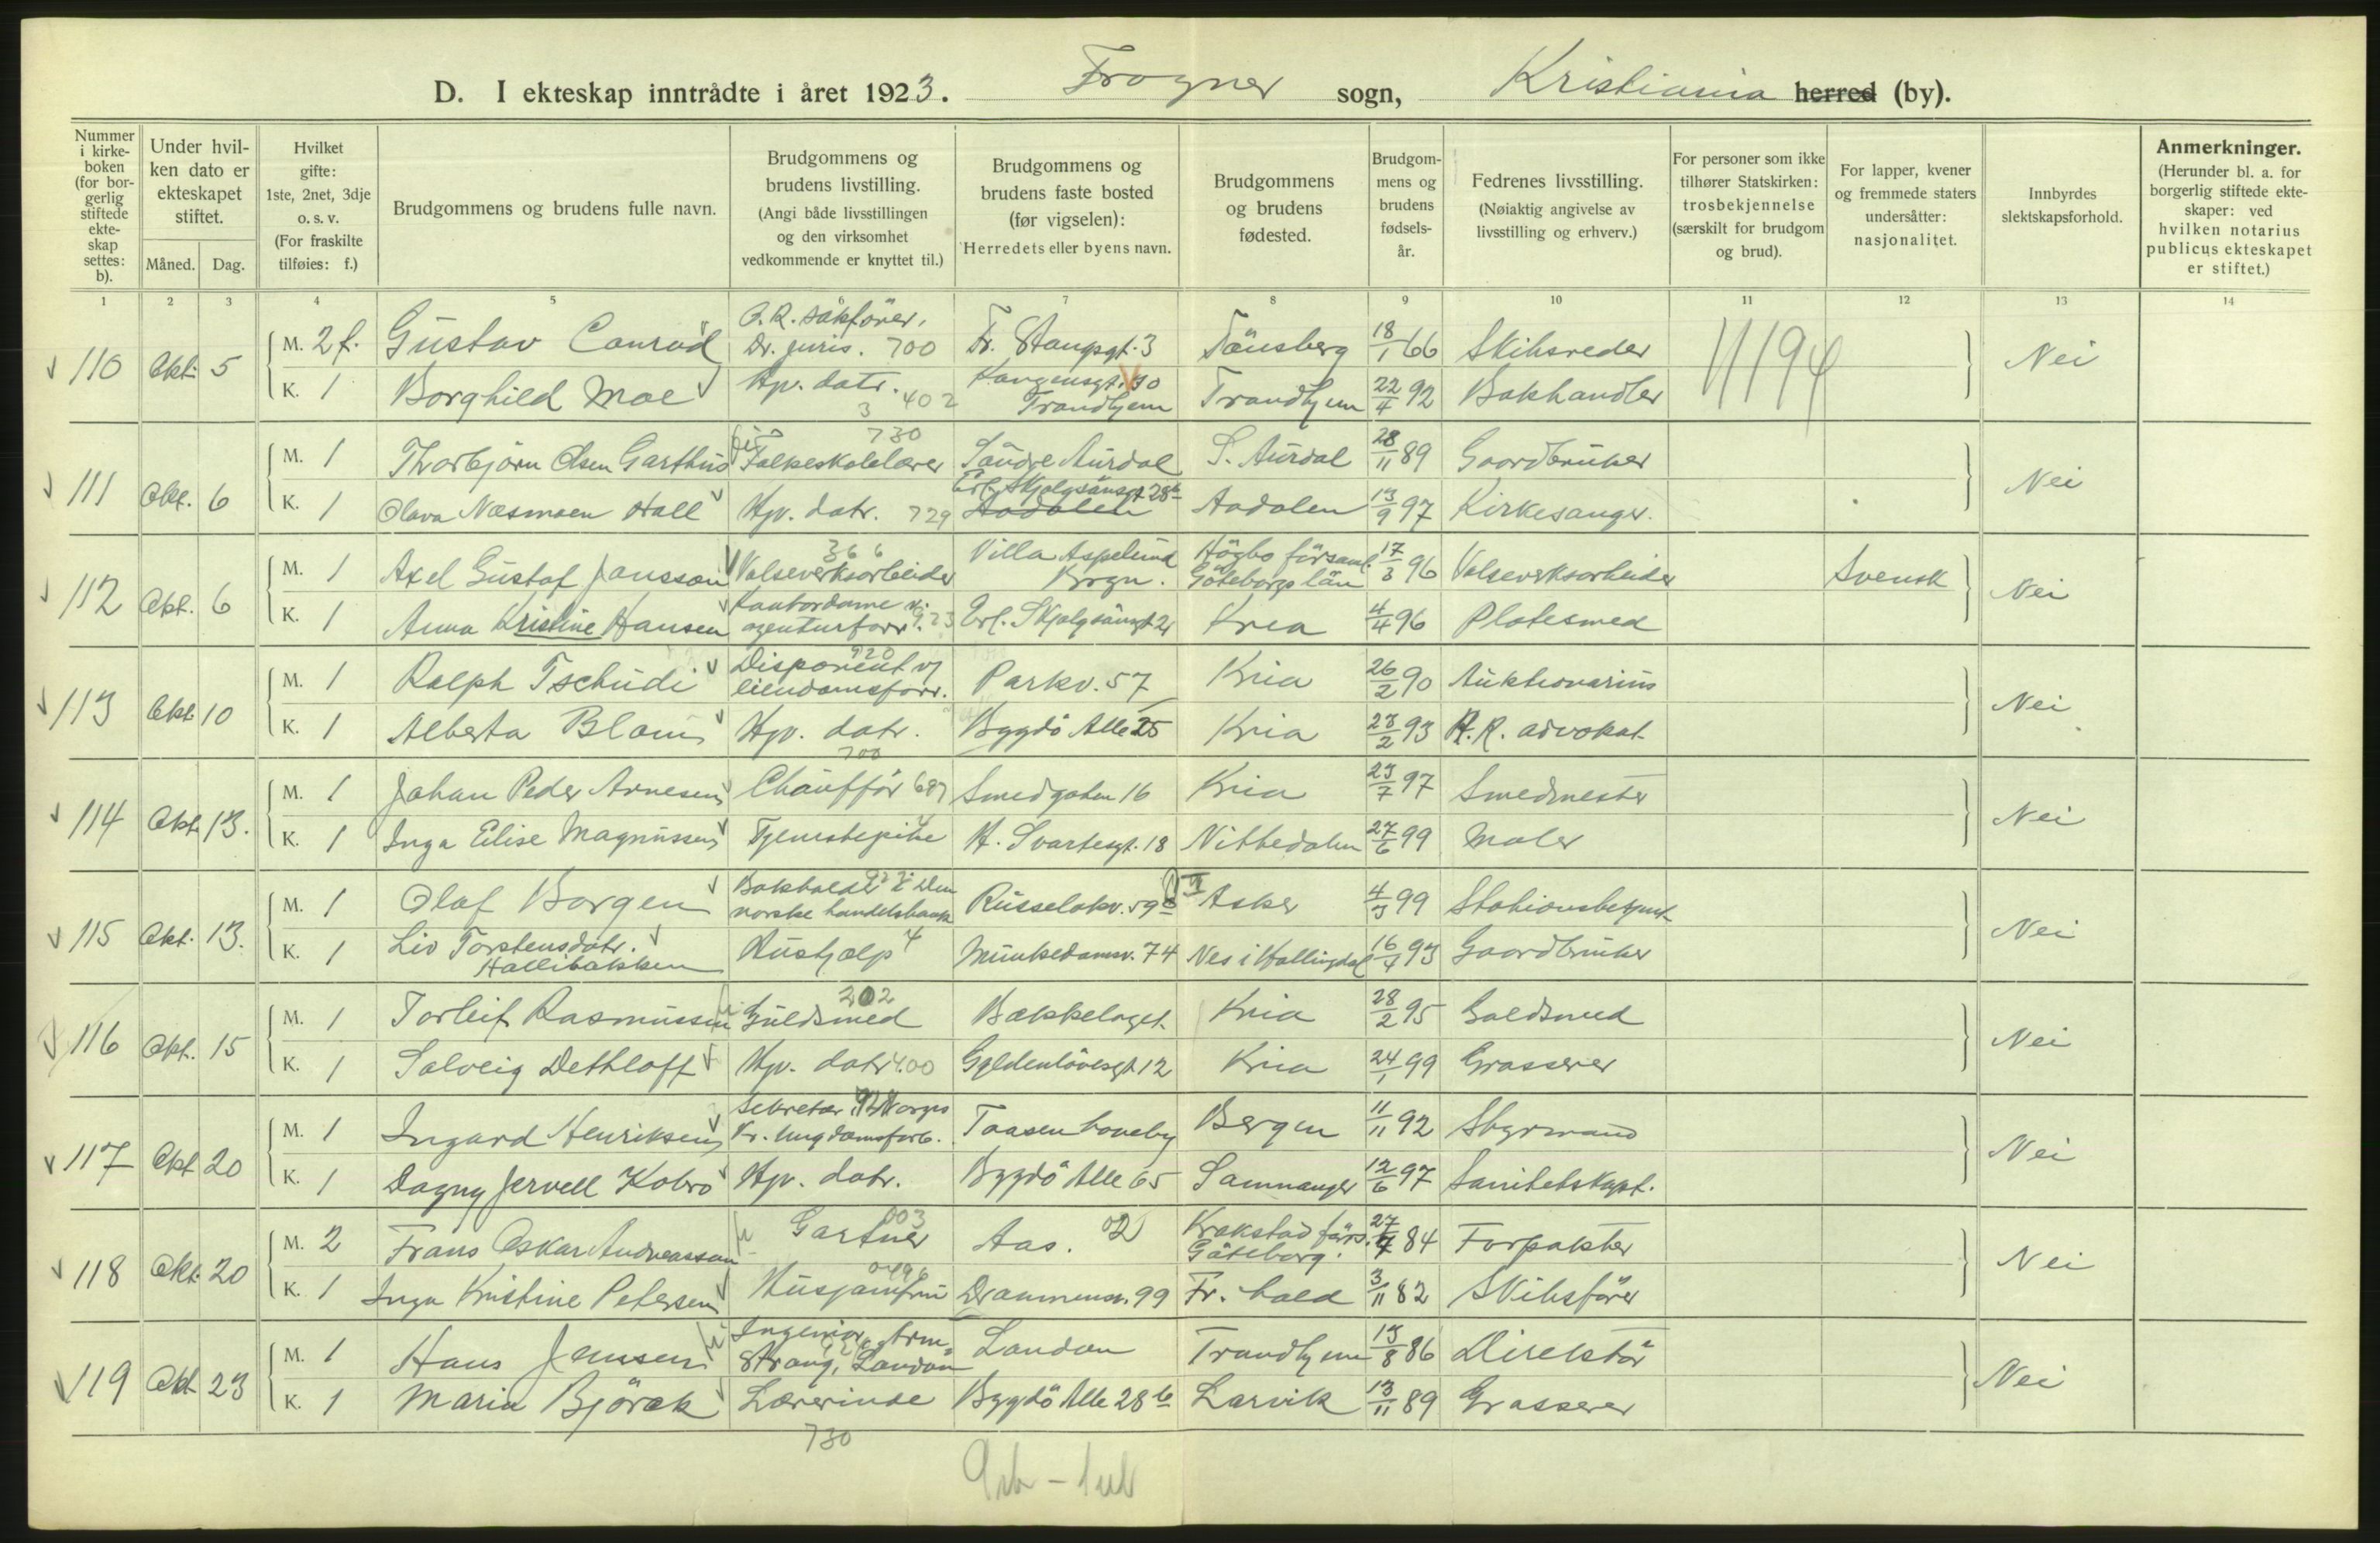 D. I ekteskap inntrådte i året 1923. Frogner sogn, Kristiania herred (by).
Nummer i kirkeboken (for borgerlig stiftede ekteskap settes: b).
Under hvilken dato er ekteskapet stiftet.
Måned. Dag.
Hvilket gifte: 1ste, 2net, 3dje o. s. v. (For fraskilte tilføies: f.)
Brudgommens og brudens fulle navn.
Brudgommens og brudens livstilling. (Angi både livsstillingen og den virksomhet vedkommende er knyttet til.)
Brudgommens og brudens faste bosted (før vigselen): Herredets eller byens navn.
Brudgommens og brudens fødested.
Brudgommens og brudens fødselsår.
Fedrenes livsstilling. (Nøiaktig angivelse av livsstilling og erhverv.)
For personer som ikke tilhører Statskirken: trosbekjennelse (særskilt for brudgom og brud).
For lapper, kvener og fremmede staters undersåtter: nasjonalitet.
Innbyrdes slektskapsforhold.
Anmerkninger. (Herunder bl. a. for borgerlig stiftede ekteskaper: ved hvilken notarius publicus ekteskapet er stiftet.)
1 2 3 4 5 6 7 8 9 10 11 12 13 14
110 Okt. 5 M. 2 f. Gustav Conrad O. R. sakförer, Dr. juris. 700 Fr. Stangsgt. 3 Tönsberg 18/1 66 Skibsreder 11194 Nei
K. 1 Borghild Moe Hjv. datr. 3 402 Kongensgt. 30 Trondhjem Trondhjem 22/4 92 Bokhandler
111 Okt. 6 M. 1 Thorbjörn Olsen Garthus 730 Folkeskolelærer Söndre Aurdal S. Aurdal 28/11 89 Gaardbruker Nei
K. 1 Olava Næsmoen Hall Hjv. datr. 729 Erl. Skjalgsönsgt 28b Aadalen Aadalen 13/9 97 Kirkesanger.
112 Okt. 6 M. 1 Axel Gustaf Jansson 366 Valseverksarbeider Villa Aspelund Bryn. Högbo församl. Göteborgs län 17/3 96 Valseverksarbeider Svensk Nei
K. 1 Anna Kristine Hansen Kontordame v. agenturforr. 923 Erl. Skjalgsönsgt 21 Kria 4/4 96 Platesmed
113 Okt 10 M. 1 Ralph Tschudi 920 Disponent v/ eiendomsforr. Parkv. 57 Kria 26/2 90 Auktionarius Nei
K. 1 Alberta Blom Hjv. datr. 700 Bygdö Alle 25 Kria 23/2 93 H. R. advokat
114 Okt 13. M. 1 Johan Peder Arnesen Chauffför 687 Smedgaten 16 Kria 23/7 97 Smedmester Nei
K. 1 Inga Elise Magnussen Tjenestepike H. Svartesgt. 18 Nittedalen 27/6 99 Maler
115 Okt. 13. M. 1 Olaf Borgen Bokholder i Den norske handelsbank Russelökv. 59 Asker 4/3 99 Stationsbetjent Nei
K. 1 Liv Torstensdatr. Hallibakken Hushjælp 4 Munkedamsv. 74 Nes i Hallingdal 16/4 93 Gaardbruker
116 Okt. 15 M. 1 Torleif Rasmussen 202 Guldsmed Bækkelaget Kria 28/2 95 Guldsmed Nei
K. 1 Solveig Dethloff Hjv. datr 400 Gyldenlövesgt 12 Kria 24/1 99 Grosserer
117 Okt 20 M. 1 Ingard Henriksen Sekretær i Norges Kr. Ungdomsforb. Taasen haveby Bergen 11/11 92 Styrmand Nei
K. 1 Dagny Jervell Kobro Hjv. datr. Bygdö Alle 65 Samnanger 12/6 97 Sanitetskapt.
118 Okt. 20 M. 2 Frans Oskar Andreasson 003 Gartner Aas. 02 Krokstad förs. Göteborg. 27/4 84 Forpakter Nei
K. 1 Inga Kristine Petersen Husjomfru Drammensv. 99 Fr. hald 3/11 82 Skibsförer
119 Okt 23 M. 1 Hans Jensen Ingeniør Armstrong, London London Trondhjem 13/8 86 Direktör Nei
K. 1 Maria Björck Lærerinde Bygdö Alle 28b Larvik 13/11 89 Grosserer
730